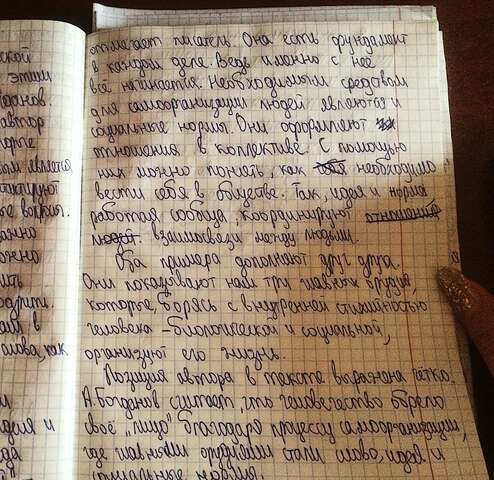 ской
этим
данов.
автор
является
ктируют
отмечает писатель. Она есть фундамент
в каждом деле. Ведь именно с неё
всё начинается. Необходимым средством
для самоорганизации людей являются и
социальные нормы. Они оформляют
отношения в коллективе. С помощью
них можно понять, как себя необходимо
вести себя в обществе. Так, идея и норма
работая сообща, координируют отношения
людей взаимосвязи между людьми.
Оба примера дополняют друг друга.
Они показывают нам три главных орудия,
которые, борясь с внутренней стихийностью
человека – биологической и социальной,
организуют его жизнь.
Позиция автора в тексте выражена четко.
А.Богданов считает, что человечество обрело
своё "лицо" благодаря процессу самоорганизации,
где главными орудиями стали слово, идея и
социальные нормы.
слова, как
идея и